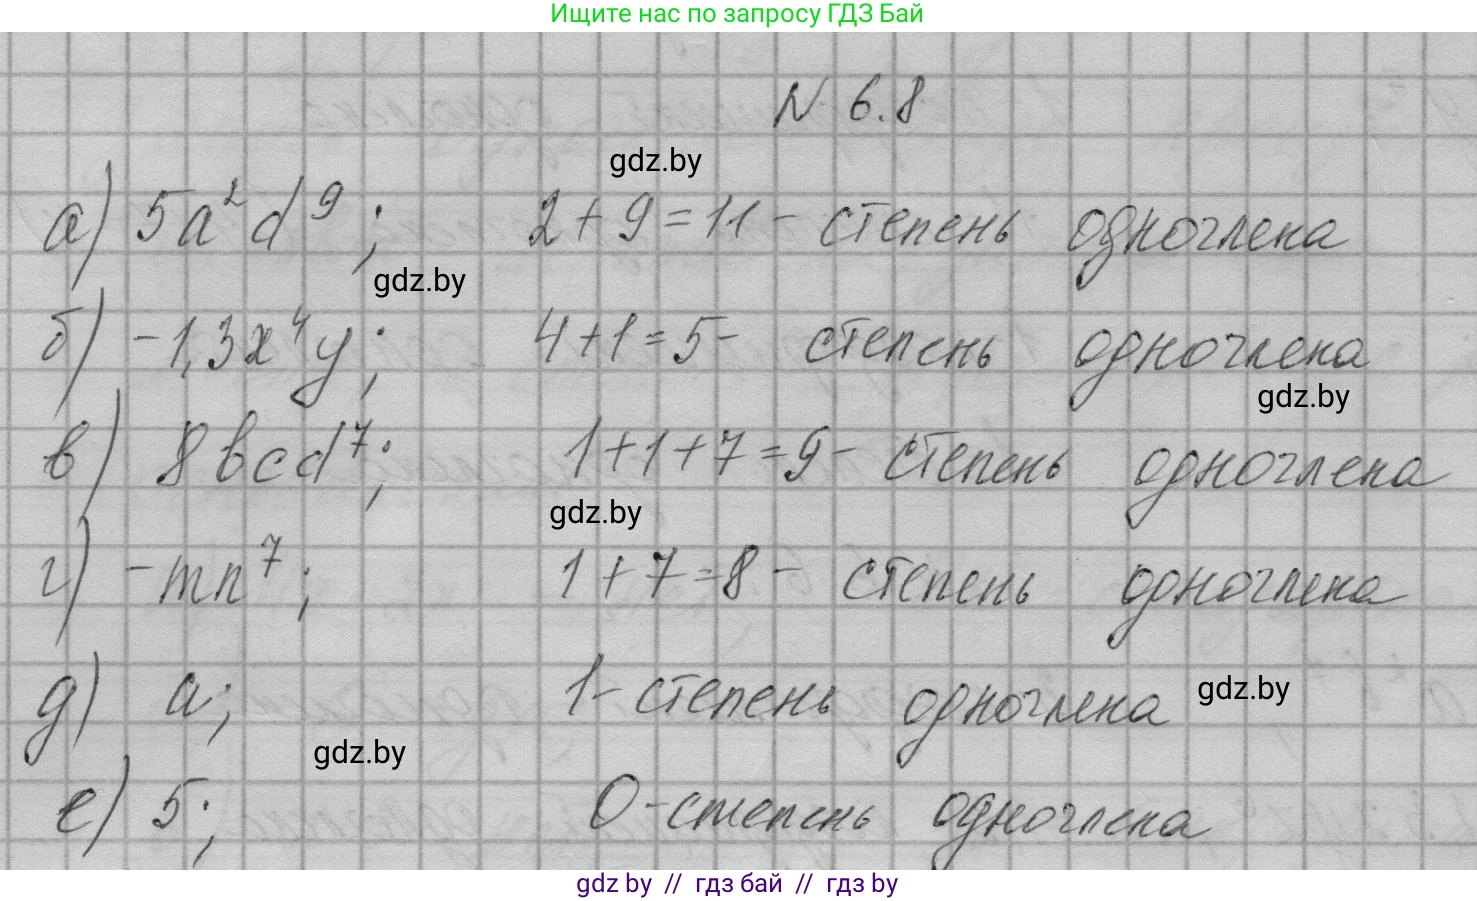 Ищите нас по запросу ГДЗ Бай
N 6.8
gdz.by
а) 5a²d⁹; 2+9=11- степень одночлена
gdz.by
б) -1,3x⁴y; 4+1=5- степень одночлена
gdz.by
в) 8bcd⁷; 1+1+7=9- степень одночлена
gdz.by
г) -mn⁷; 1+7=8- степень одночлена
д) a; 1- степень одночлена
gdz.by
gdz.by
е) 5; 0-степень одночлена
gdz by // гдз бай // гдз by